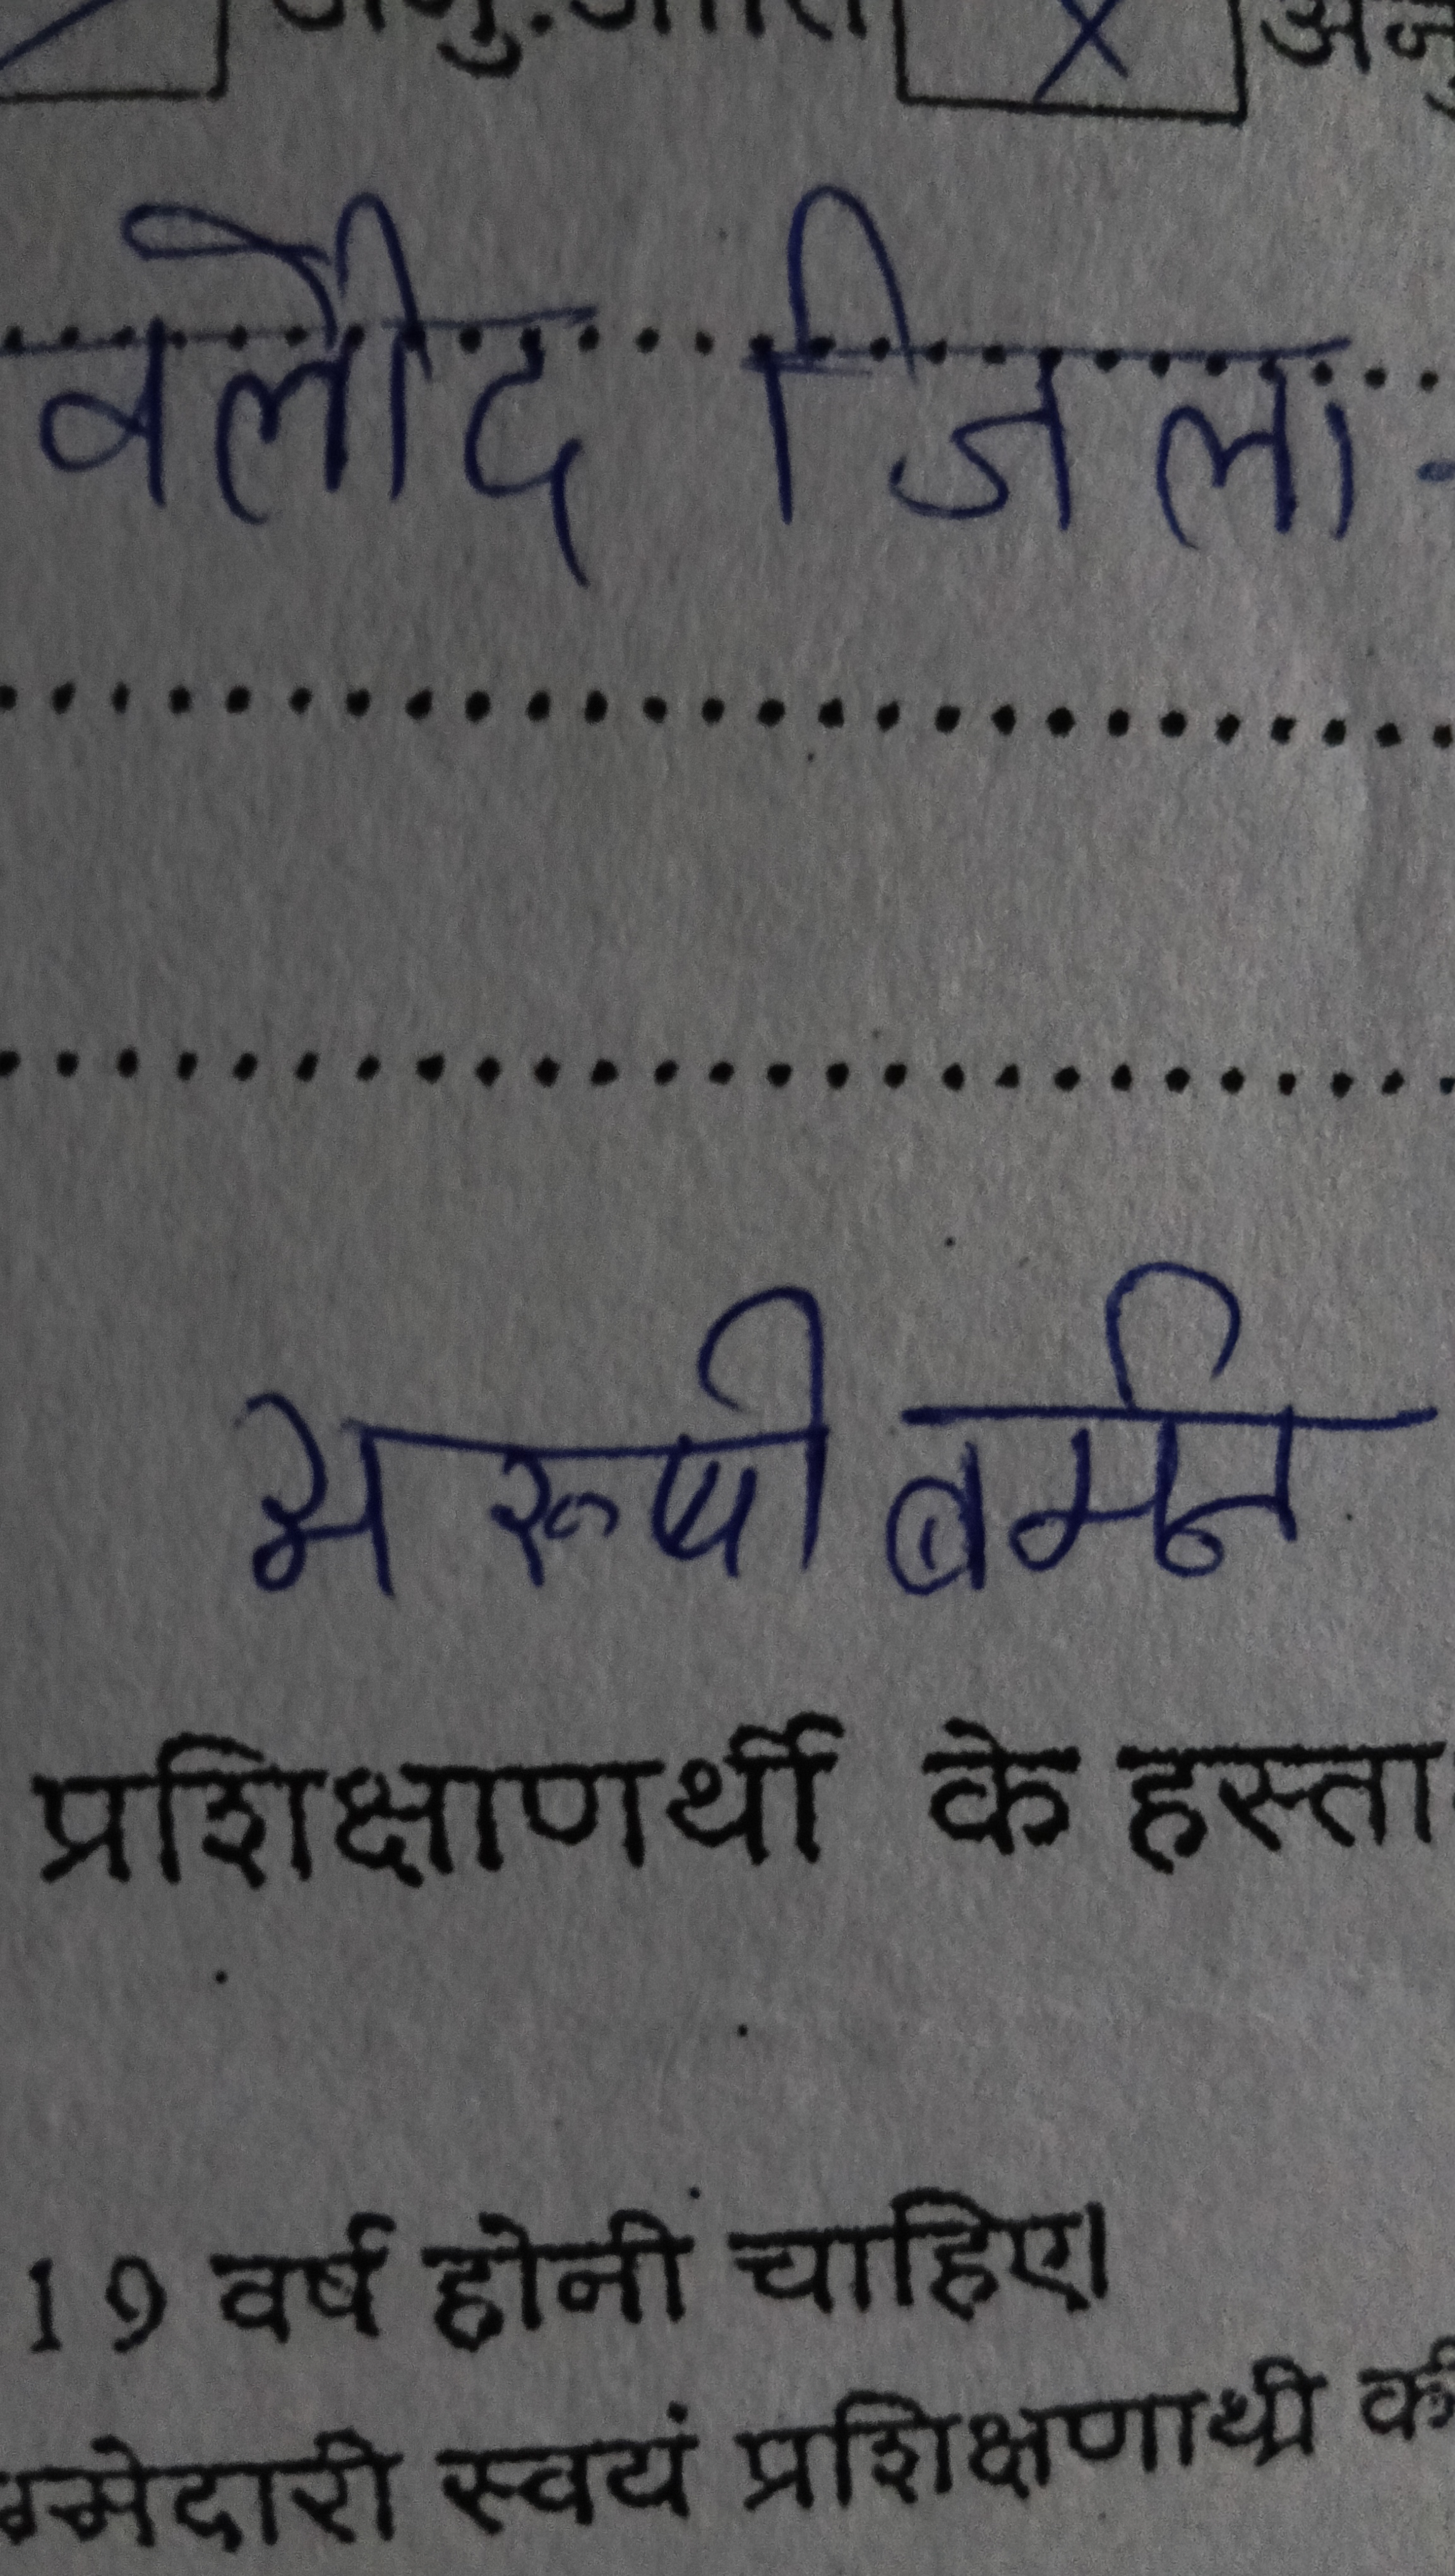 अनु.जाति
वलौद जिला-
भरूषी बर्मन
प्रशिक्षाणर्थी के हस्ता
19 वर्ष होनी चाहिए।
म्मेदारी स्वयं प्रशिक्षणार्थी की